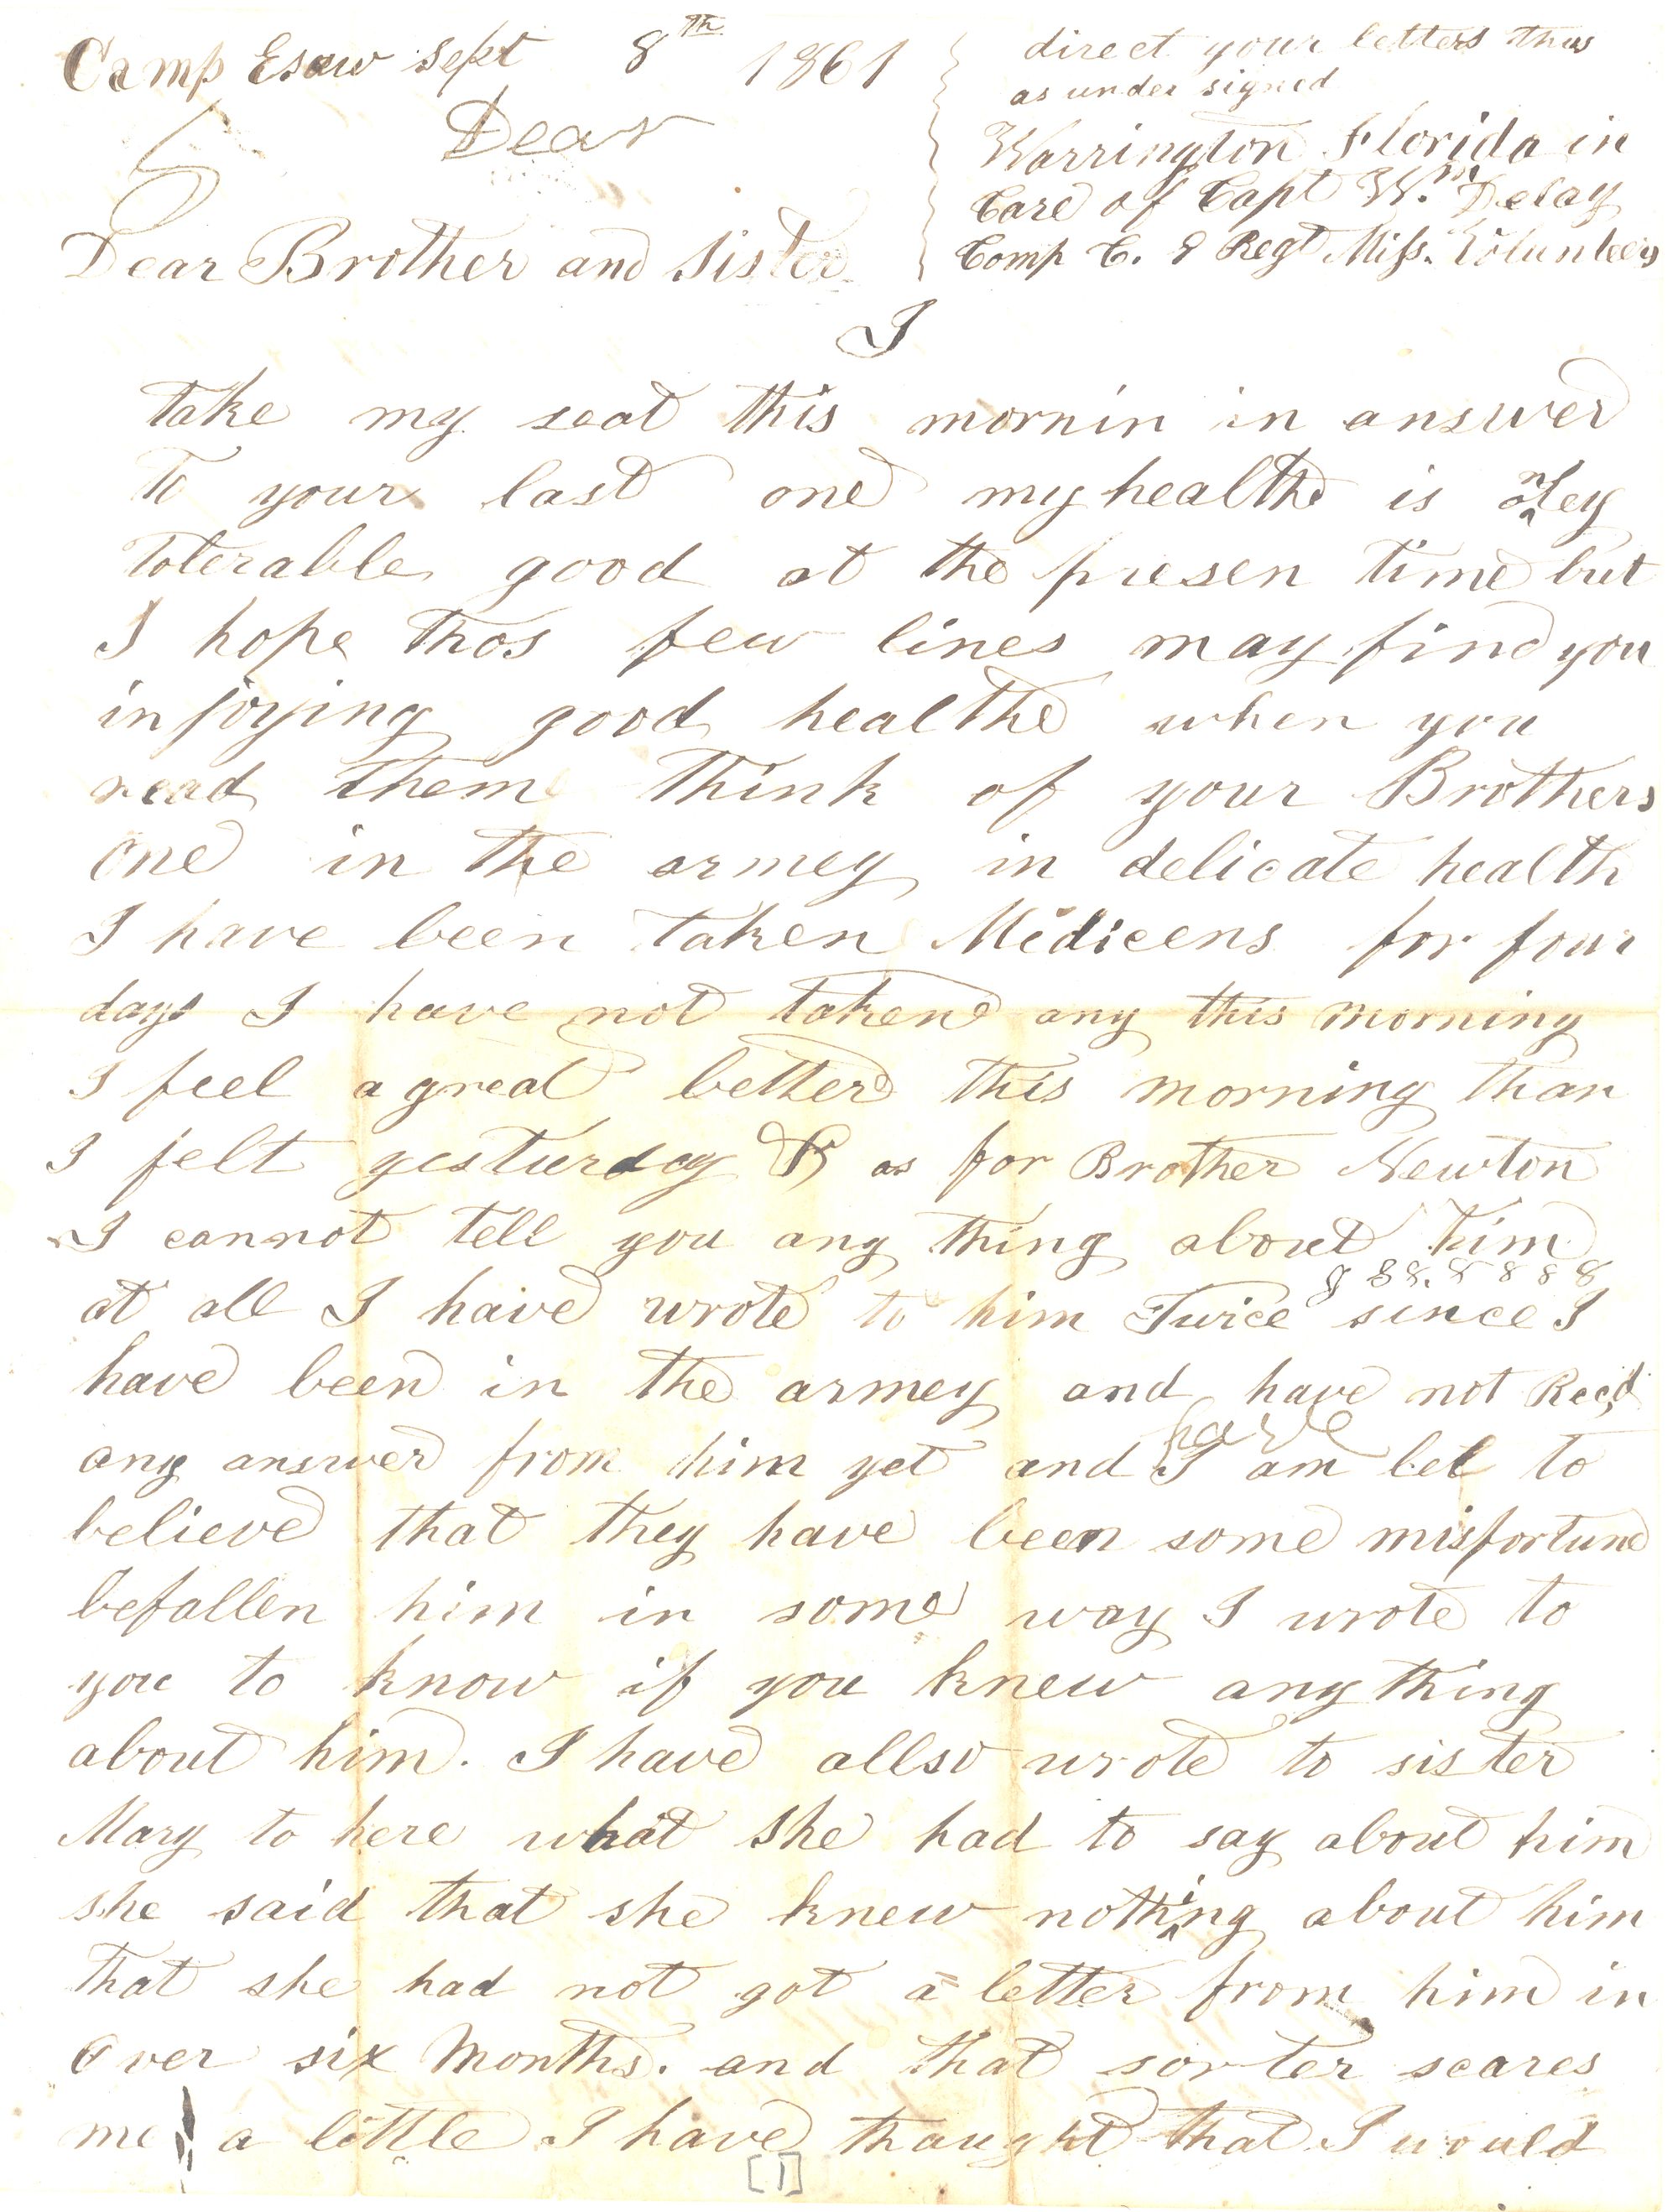 Camp Esaw Sept 8th 1861
direct your letters thus
as under signed
Warrington Florida in
Care of Capt Wm Delay
Comp C. 9 Regt Miss. Volunteers
Dear
Dear Brother and Sister
I
take my seat this mornin in answer
to your last one my healthe is onley
tolerable good at the presen time but
I hope thos few lines may find you
injoying good healthe when you
read them think of your Brothers
one in the armey in delicate health
I have been taken Mediceens for four
days I have not taken any this morning
I feel a great better this morning than
I felt yesturday as for Brother Newton
I cannot tell you any thing about him
at all I have wrote to him Twice since I
have been in the armey and have not Recd
any answer from him yet and I am led to
have
believe that they have been some misfortune
befallen him in some way I wrote to
you to know if you knew any thing
about him. I have allso wrote to sister
Mary to here what she had to say about him
she said that she knew nothing about him
that she had not got a letter from him in
over six Months. and that sorter scares
me a little I have thought that I would
[1]